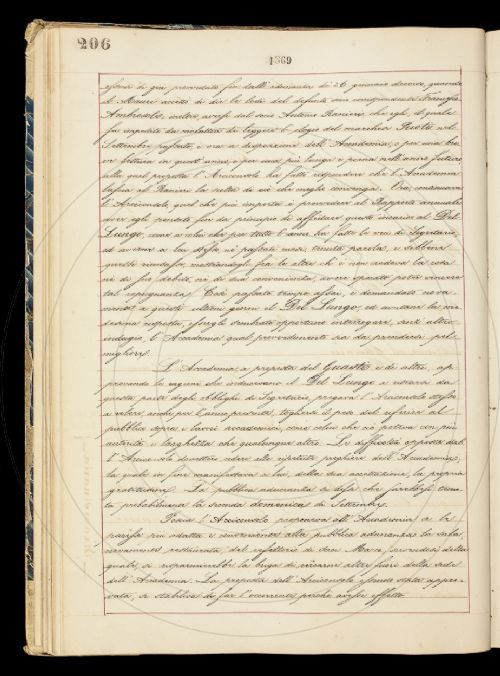 206
1869
essersi di già provveduto fin dall'adunanza de' 26 gennaio decorso, quando
il Mauri accettò di dir le lodi del defunto suo corrispondente Francesco
Ambrosoli, inteso avresti dal socio Antonio Ranieri che egli, il quale
fu impedito da malattia di leggere l'elogio del marchese Puoti nel
Settembre passato, è ora a disposizione dell'Accademia, o per una bre
ve lettura in quest'anno, o per una più lunga e piena nell'anno futuro
alla qual proposta l'Arciconsolo ha fatto rispondere che l'Accademia
lascia al Ranieri la scelta di ciò che meglio convenga. Ora, conservava
l'Arciconsolo, quel che più importa è provvedere al Rapporto annuale
aver egli pensato fin da principio di affidare questo incarico al Del
Lungo, come a colui che per tutto l'anno ha fatto le veci di Segretario,
ed averne a lui stesso, nei passati mesi, tenuta parola, e debbono
questo ricusasse, mettendogli fra le altre che e' non vedeva la cosa
nè di suo debito nè di sua convenienza, avere sperato poter vincere
tal repugnanza. Così passato tempo assai, e domandato nuova
mente a questi ultimi giorni il Del Lungo, ed avutane la me
desima risposta, essergli sembrato opportuno interrogare, senz'altro
indugio, l'Accademia qual provvedimento sia da prendersi pel
migliore.
L'Accademia a proposta del Guasti e di altri, ap
provando le ragioni che inducevano il Del Lungo a ritrarsi da
questa parte degli obblighi di Segretario, pregava l'Arciconsolo stesso
a volere, anche per l'anno presente, togliersi il peso del riferire al
pubblico sopra i lavori accademici, come colui che ciò poteva con più
autorità e larghezza che qualunque altro. Le difficoltà opposte dal
l'Arciconsolo dovettero cedere alle ripetute preghiere dell'Accademia,
la quale in fine manifestava a lui, della sua accettazione, la propria
gratitudine. La pubblica adunanza si disse che sarebbesi tenu
ta probabilmente la seconda domenica di Settembre.
Poscia l'Arciconsolo proponeva all'Accademia se le
paresse più adatta e conveniente alla pubblica adunanza la sala,
nuovamente restaurata, del refettorio di San Marco, servendosi della
quale, si risparmierebbe la briga di cercarne altre fuori della sede
dell'Accademia. La proposta dell'Arciconsolo essendo stata appro-
vata, si stabiliva di far l'occorrente perchè avesse effetto.